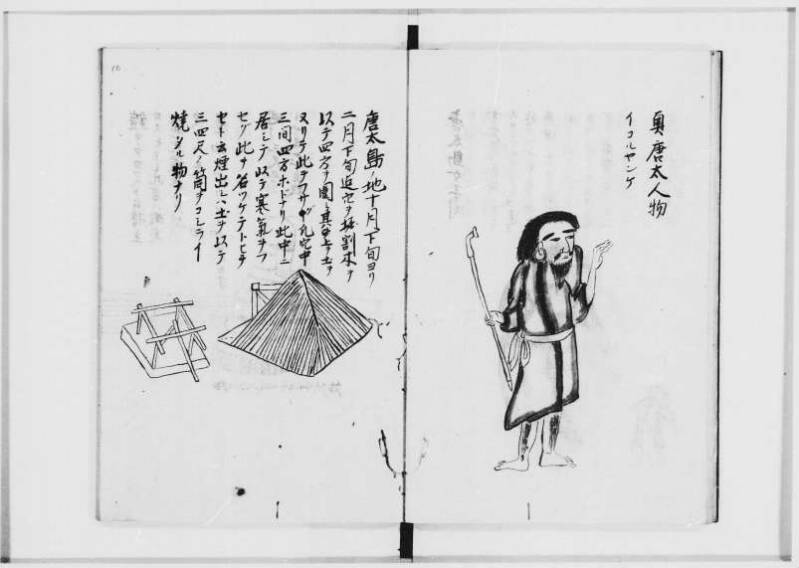 奥唐太人物
イコルヤンケ
唐太島ノ地十月下旬ヨリ
二月下旬迄穴ヲ掘割木ヲ
以テ四方ヲ囲ミ其上ヲ土ヲ
ヌリテ此ヲフサグ凡穴中
三間四方ホドナリ此中ニ
居シテ以テ寒氣ヲフ
セグ此ヲ名ツケテトヒチ
セト云煙出シハ土ヲ以テ
三四尺ノ筒ヲコシライ
焼シル物ナリ